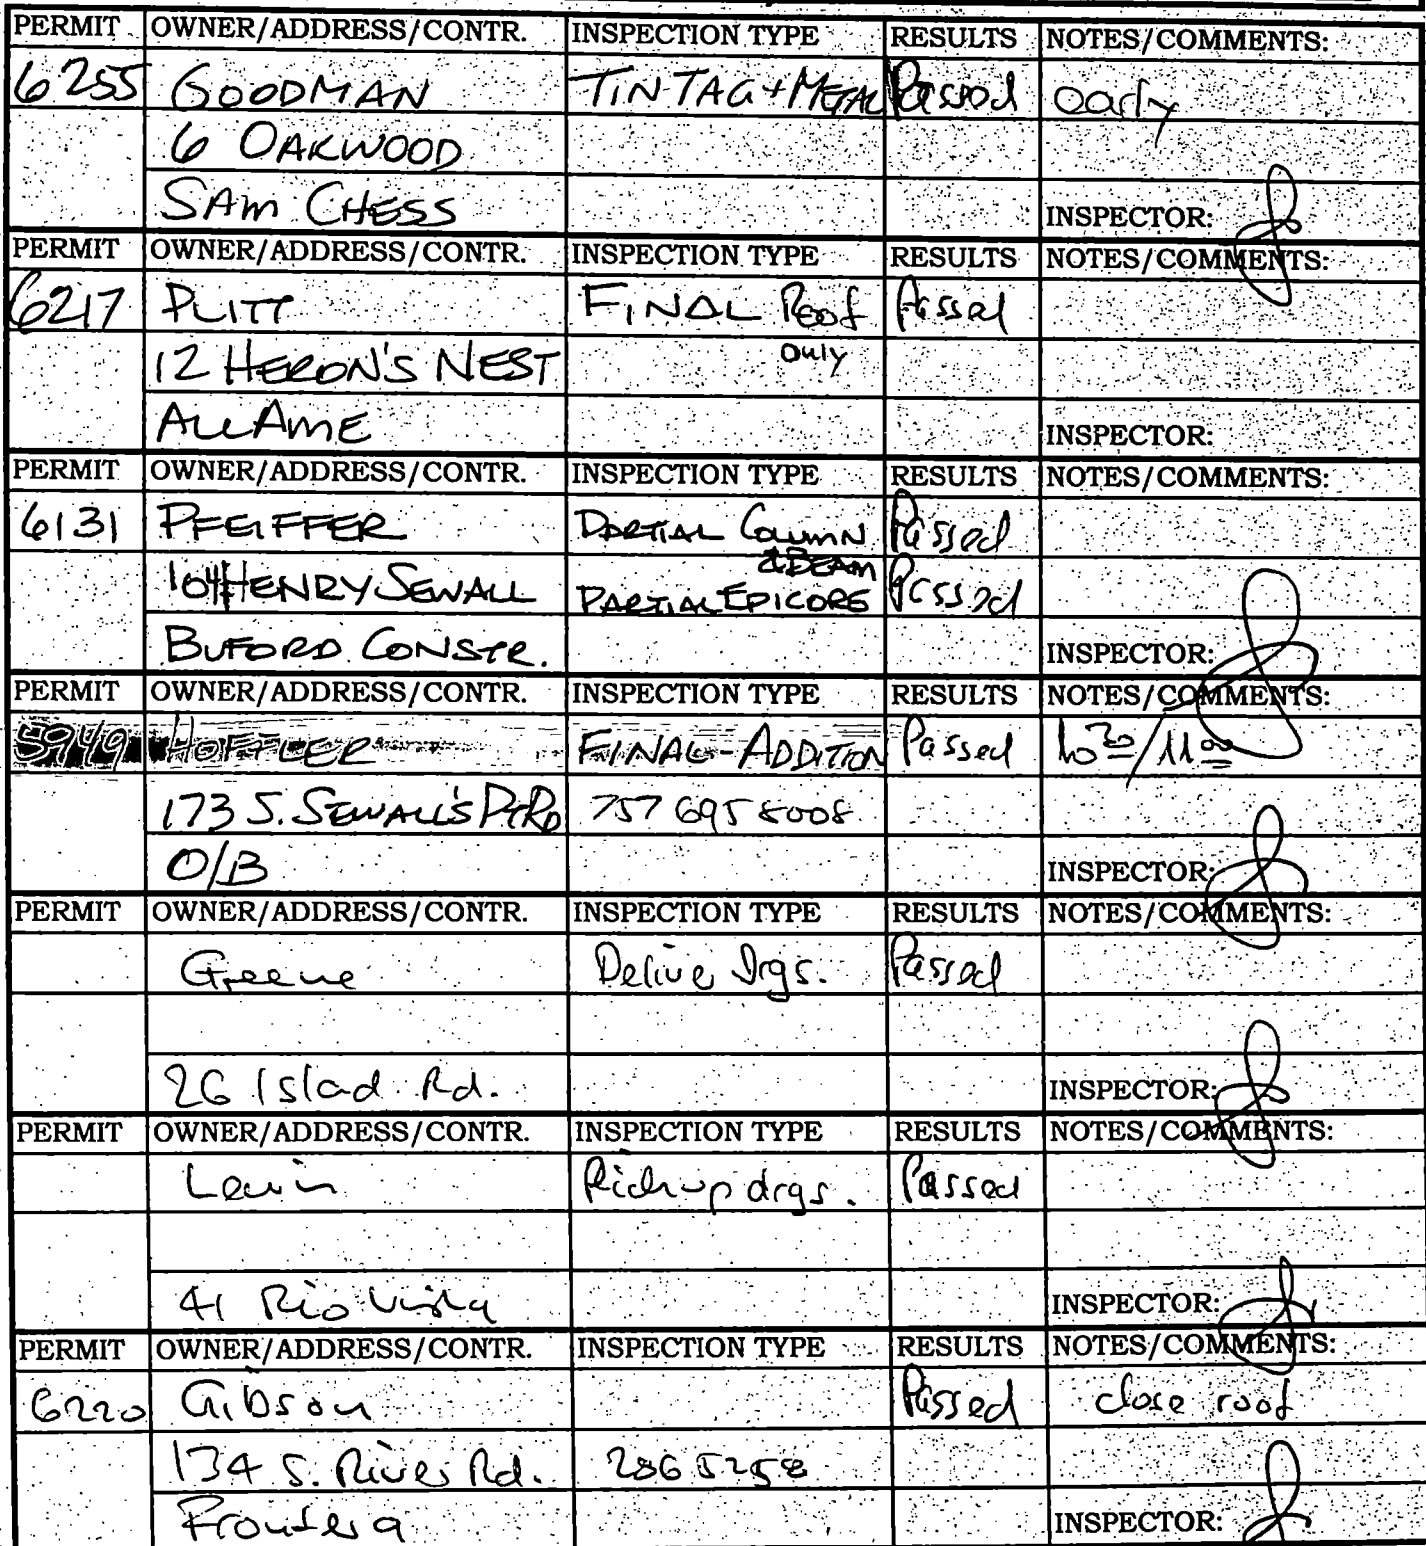 PERMIT OWNER/ADDRESS/CONTR. INSPECTION TYPE RESULTS NOTES/COMMENTS:
6255 GOODMAN TIN TAG+METAL Passed early
6 OAKWOOD
SAM CHESS INSPECTOR:
PERMIT OWNER/ADDRESS/CONTR. INSPECTION TYPE RESULTS NOTES/COMMENTS:
6217 PLITT FINAL Roof Passed
12 HERON'S NEST only
ALLAME INSPECTOR:
PERMIT OWNER/ADDRESS/CONTR. INSPECTION TYPE RESULTS NOTES/COMMENTS:
6131 PFEIFFER PARTIAL COLUMN Passed
& BEAM
104 HENRY SEWALL PARTIAL EPICORE Passed
BUFORD CONSTR. INSPECTOR:
PERMIT OWNER/ADDRESS/CONTR. INSPECTION TYPE RESULTS NOTES/COMMENTS:
5949 HOFFLER FINAL-ADDITION Passed 10 30/11 00
173 S. SEWALL'S PT RD 757 695 8008
O/B INSPECTOR:
PERMIT OWNER/ADDRESS/CONTR. INSPECTION TYPE RESULTS NOTES/COMMENTS:
Greene Drgs. Passed
26 Islad Rd. INSPECTOR:
PERMIT OWNER/ADDRESS/CONTR. INSPECTION TYPE RESULTS NOTES/COMMENTS:
Pick-up drgs. Passed
41 Rio Vista INSPECTOR:
PERMIT OWNER/ADDRESS/CONTR. INSPECTION TYPE RESULTS NOTES/COMMENTS:
6220 Gibson Passed close roof
134 S. River Rd. 286 5258
Frontera INSPECTOR: